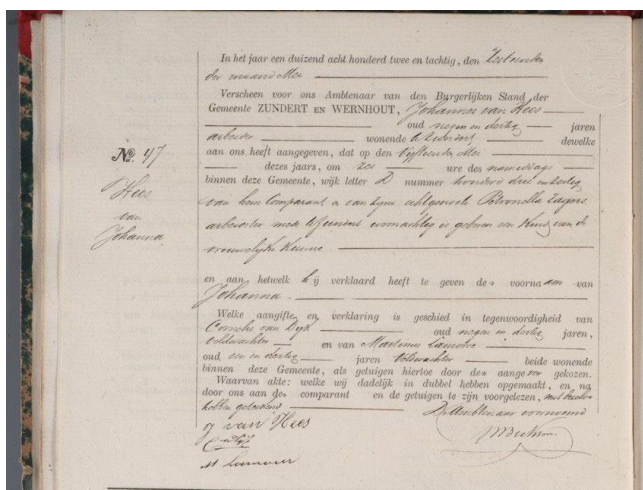 In het jaar een duizend acht honderd twee en tachtig, den Zestienden
der maand Mei
Verscheen voor ons Ambtenaar van den Burgerlijken Stand der
Gemeente ZUNDERT EN WERNHOUT, Johannes van Hees
oud negen en dertig jaren
arbeider wonende te Zundert dewelke
aan ons heeft aangegeven, dat op den vijftienden Mei
dezes jaars, om zes ure des namiddags
binnen deze Gemeente, wijk letter D nummer honderd drie en dertig
van hem Comparant en van zijne echtgenoote Petronella Zagers
arbeidster mede te Zundert woonachtig is geboren een Kind van de
vrouwelijke Kunne
No. 47
Hees
van
Johanna
en aan hetwelk hij verklaard heeft te geven den voornaam van
Johanna
Welke aangifte en verklaring is geschied in tegenwoordigheid van
Cornelis van Dijk oud negen en dertig jaren,
veldwachter en van Marinus
oud een en dertig jaren veldwachter beide wonende
binnen deze Gemeente, als getuigen hiertoe door den aangever gekozen.
Waarvan akte: welke wij dadelijk in dubbel hebben opgemaakt, en na
door ons aan den comparant en de getuigen te zijn voorgelezen, met
hebben geteekend De Ambtenaar voornoemd
J van Hees